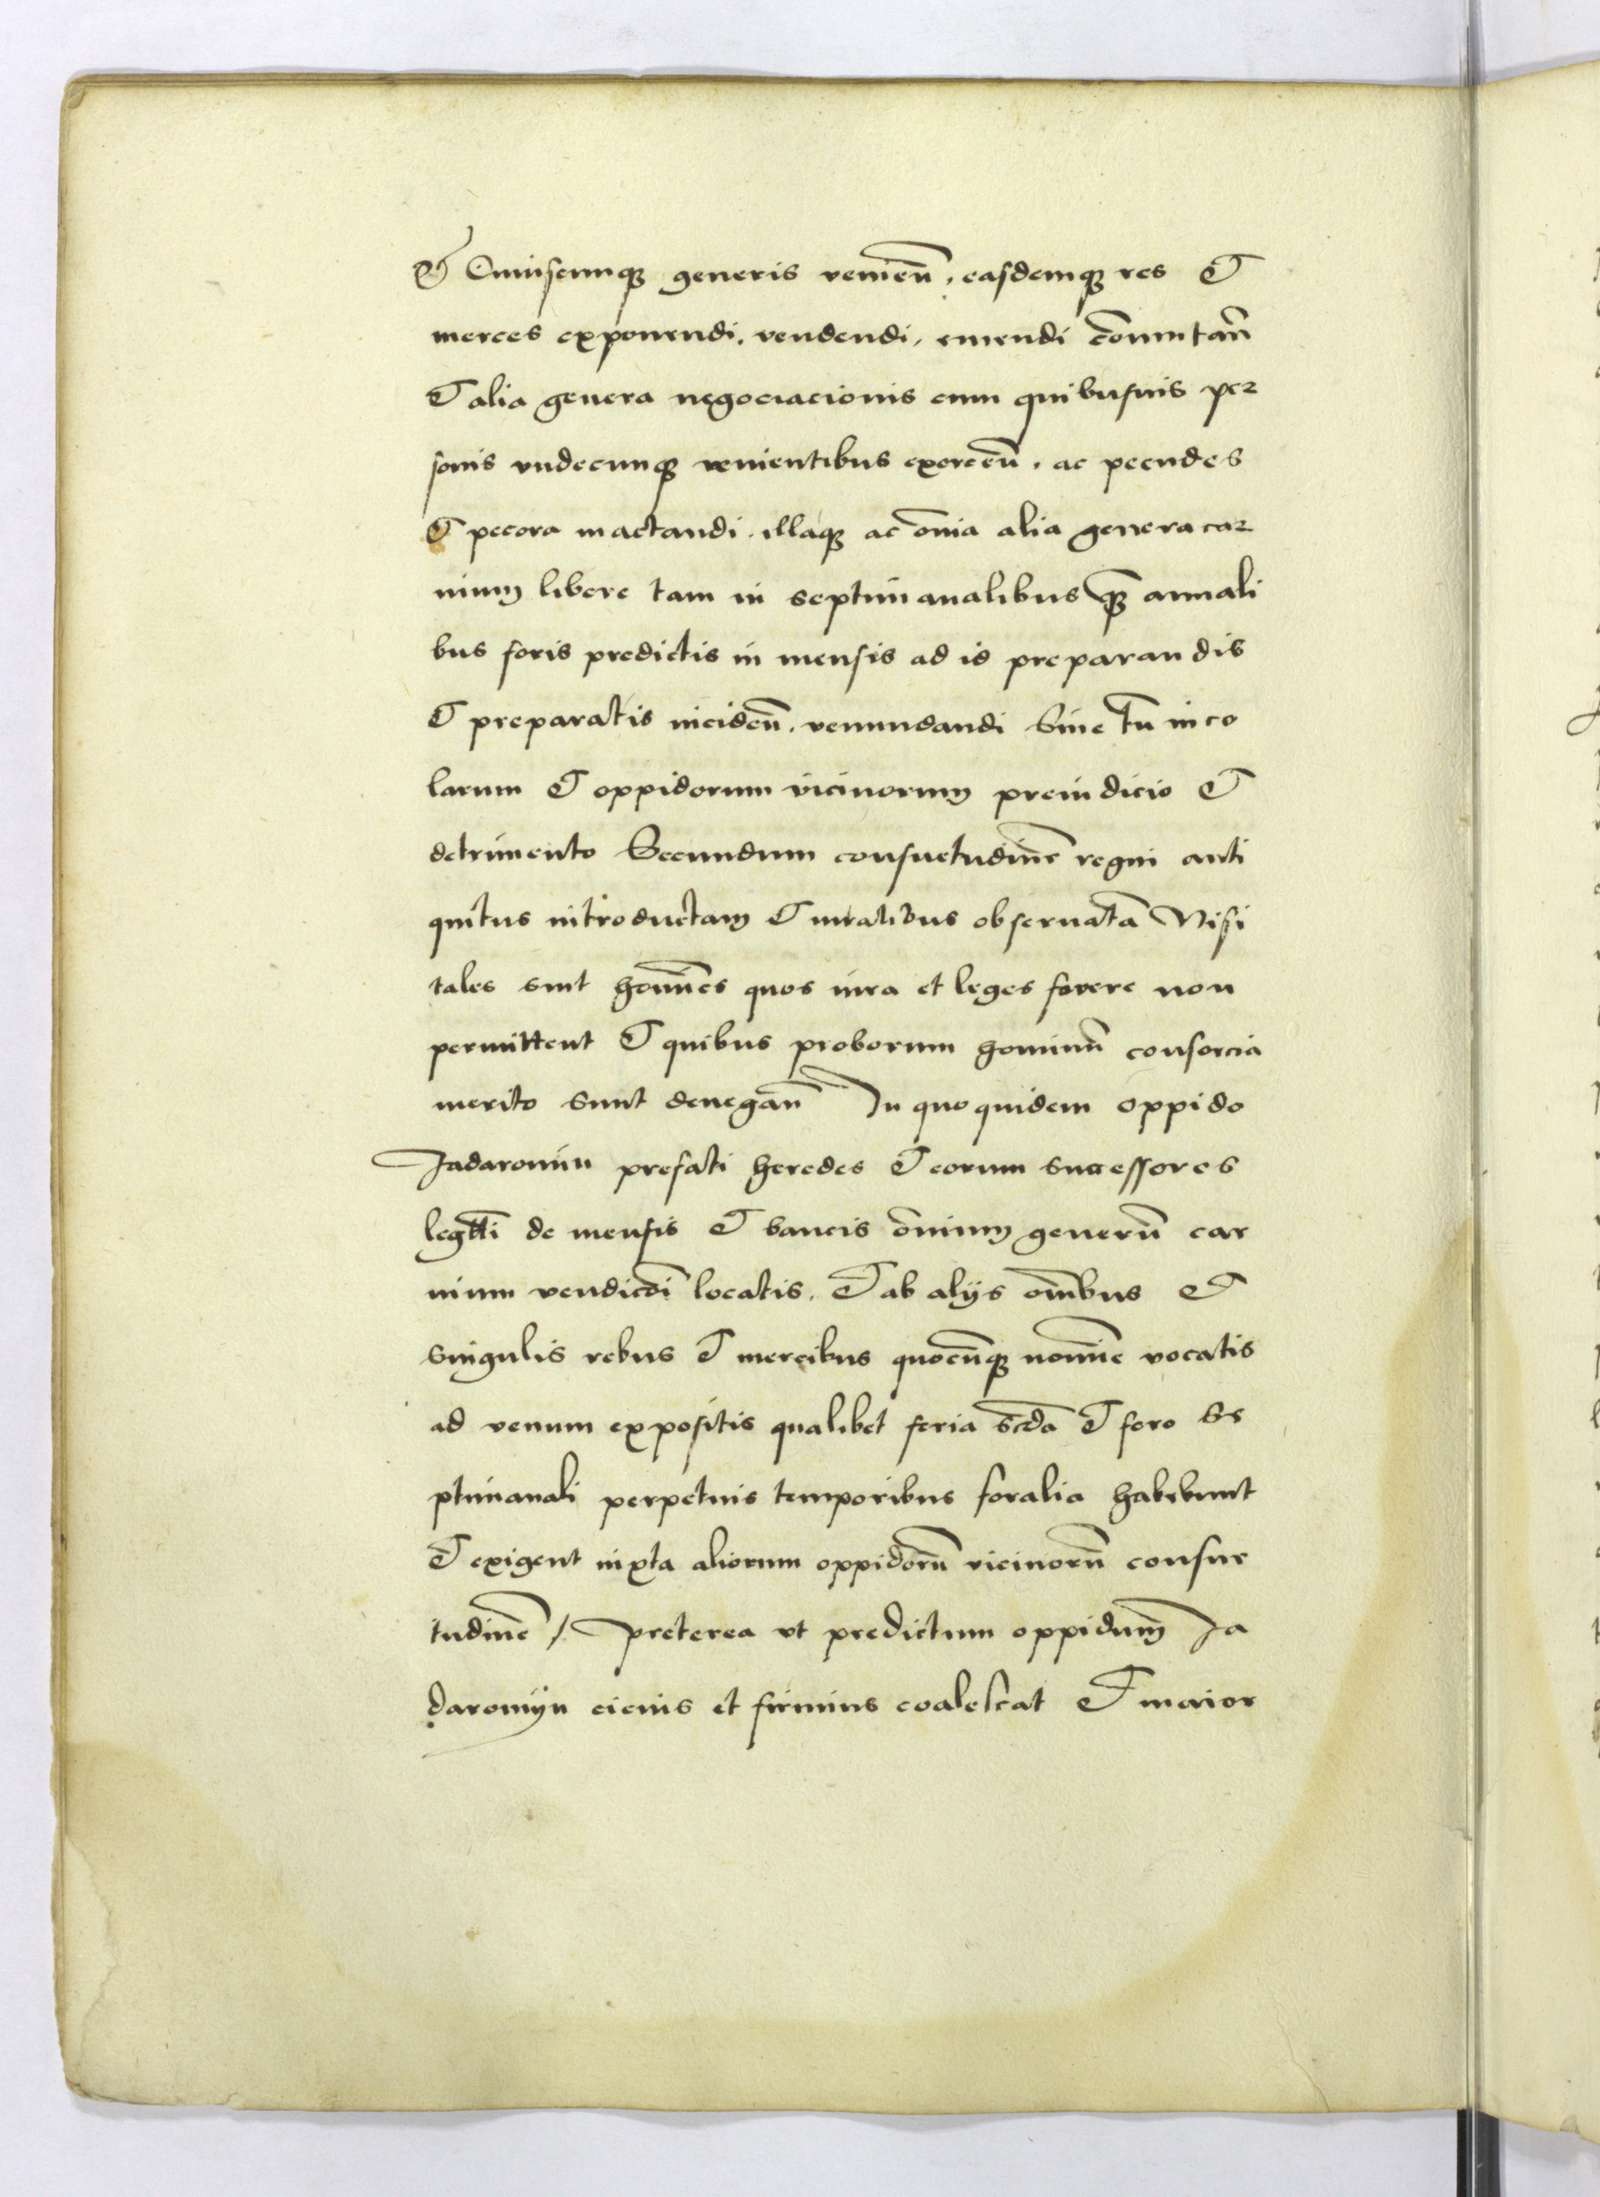 & Cuiuscumque generis venieñ. easdemque res &
merces exponendi. vendendi, emendi cōmutañ
& alia genera negociacionis cum quibusuis per
sonis vndecunque venientibus exerceñ. ac pecudes
& pecora mactandi. illaque ac ōnia alia genera car
nium libere tam in septimanalibus quam annuali
bus foris predictis in mensis ad id preparandis
& preparatis incideñ. venundandi Sine tñ inco
larum & oppidorum vicinorum preiudicio &
detrimento Secundum consuetudinē regni anti
quitus introductam & observatā Nisi
tales sint hoīnes quos iura et leges fovere non
permittent & quibus proborum hominū consorcia
merito sunt denegañ In quo quidem oppido
Jadaromin prefati heredes & eorum successores
legtti de mensis & bancis ōnium generū car
nium vendicōi locatis. & ab alijs oībus &
singulis rebus & mercibus quocūque nomīe vocatis
ad venum expositis qualibet feria scda & foro Se
ptimanali perpetuis temporibus foralia habebunt
& exigent iuxta aliorum oppidorū vicinorū consue
tudinē / Preterea vt predictum oppidum Ja
daromyn cicius et firmius coalescat & maior